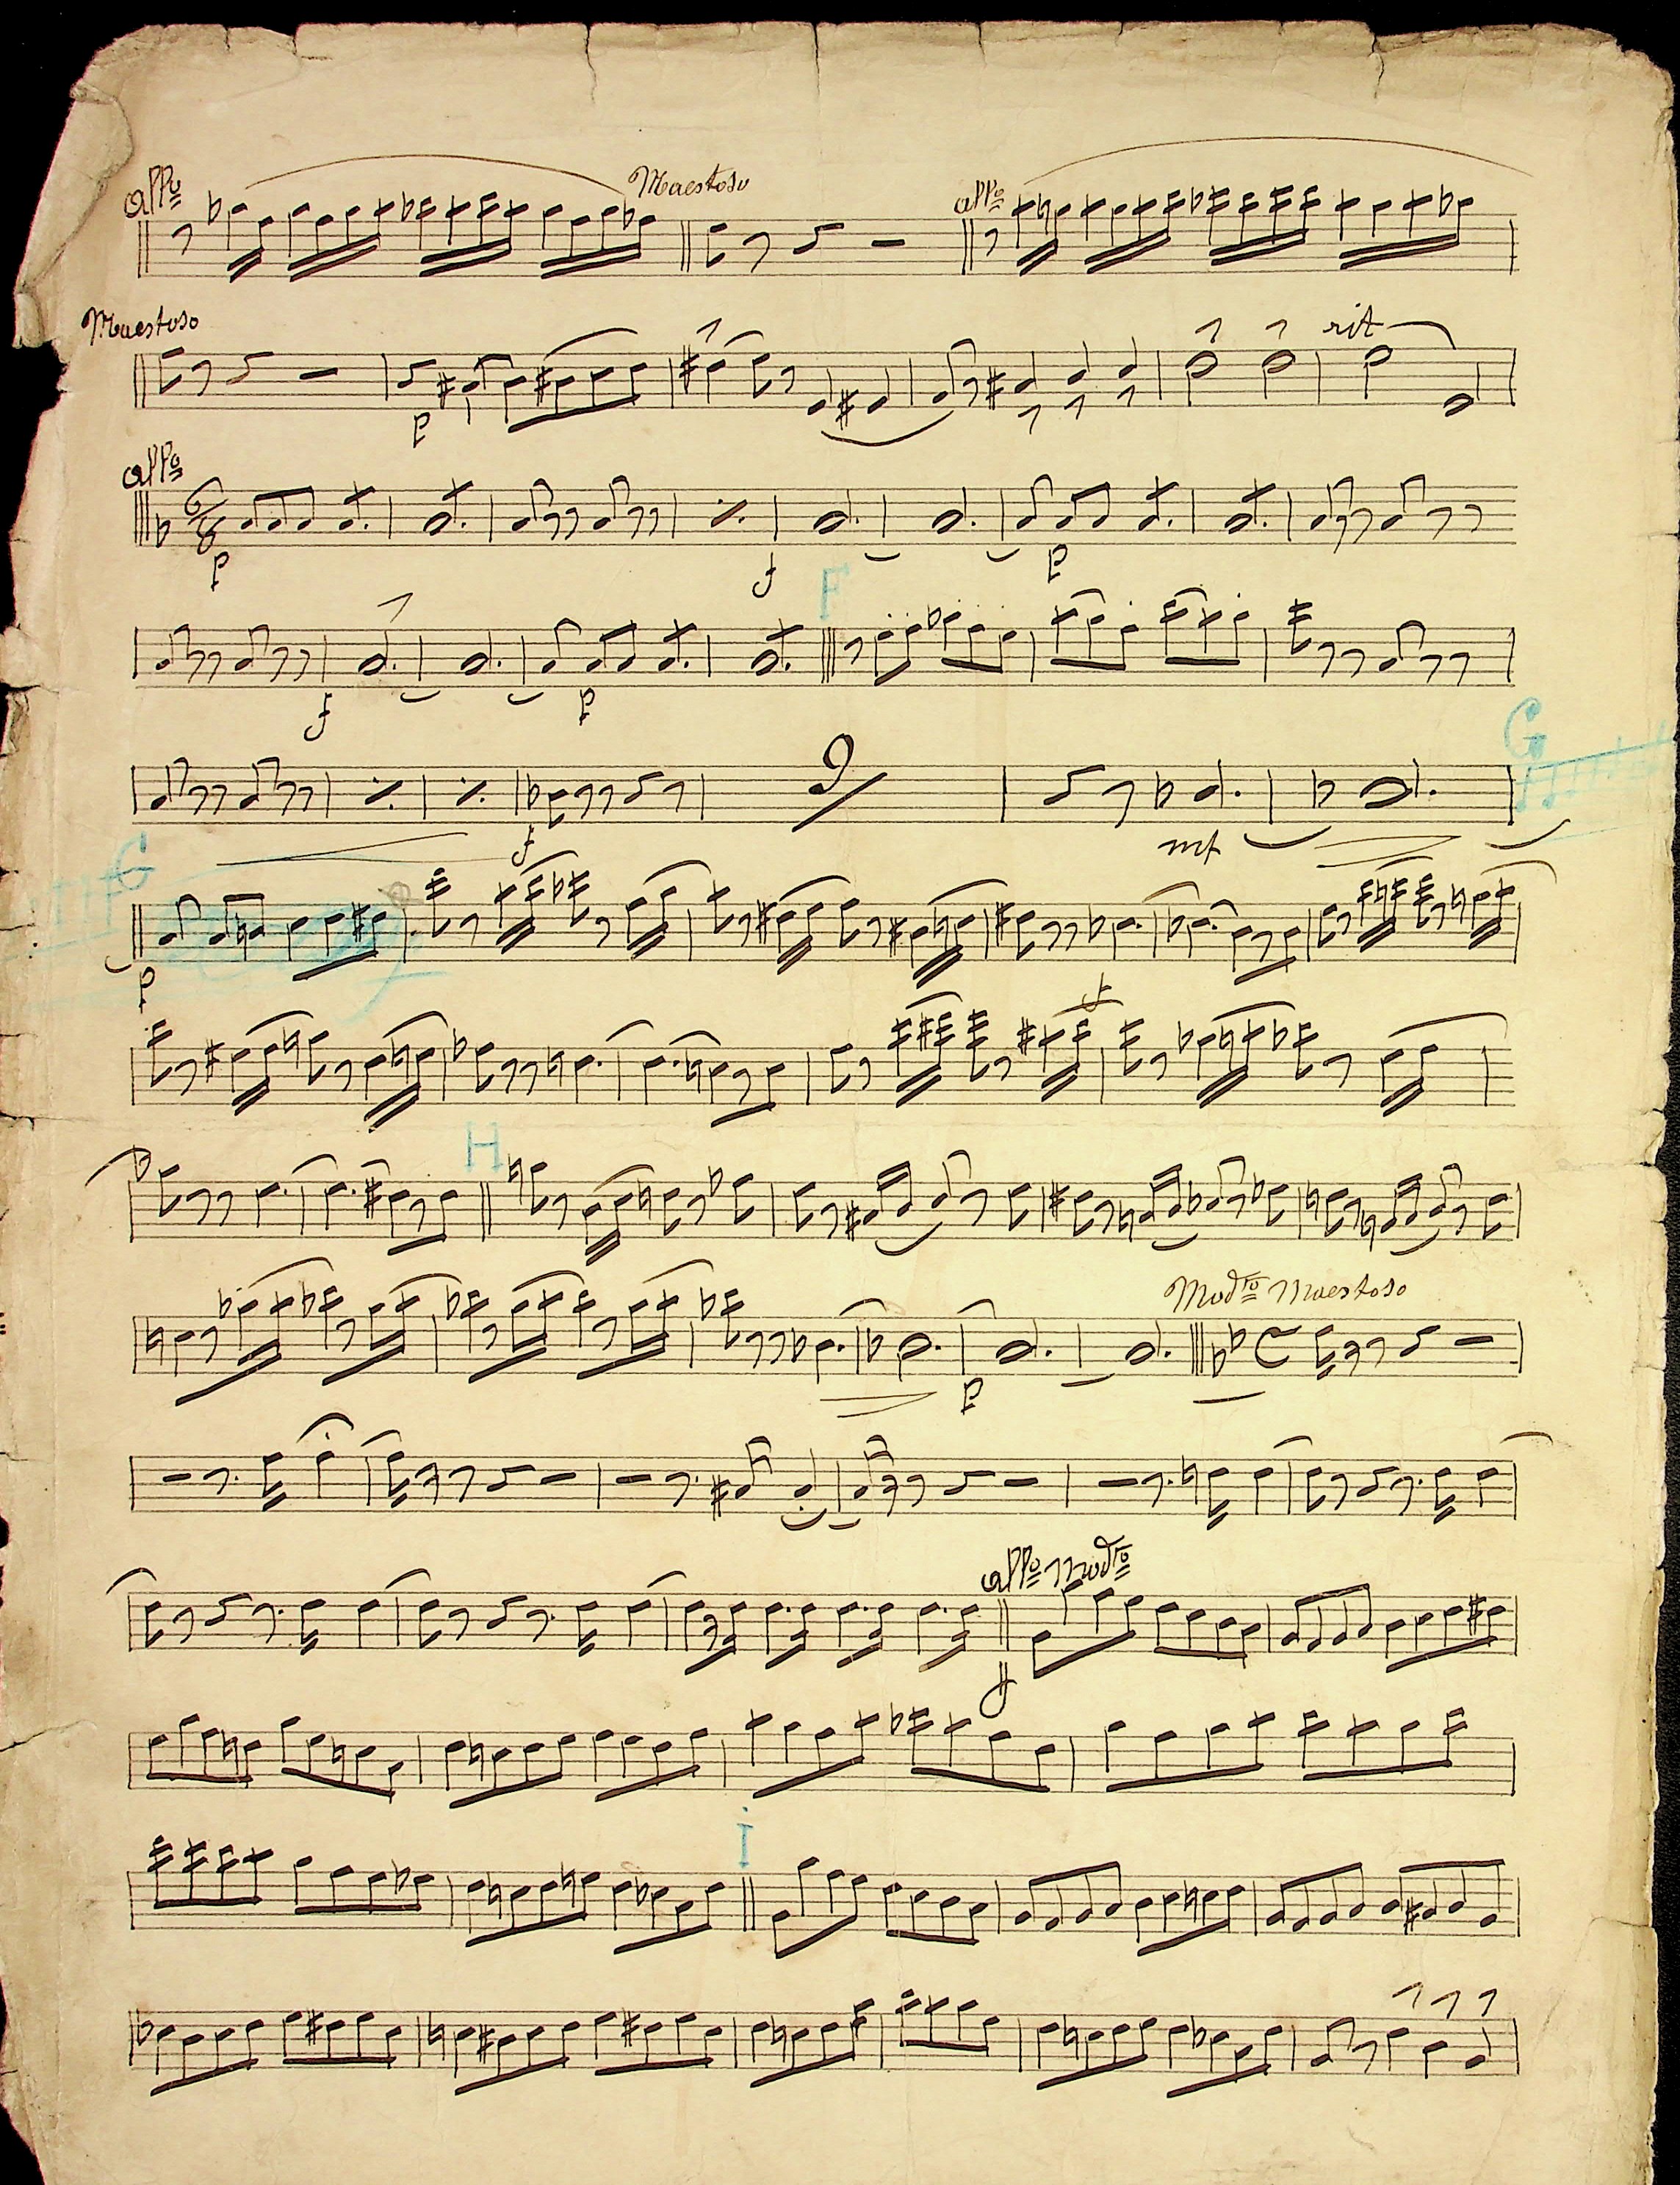 allo Maestoso allo
Maestoso rit
p
allo
6/8
p f p
F
f p
G
9
f mf
G
p
f
H
Modto Maestoso
p
C
allo modto
ff
I